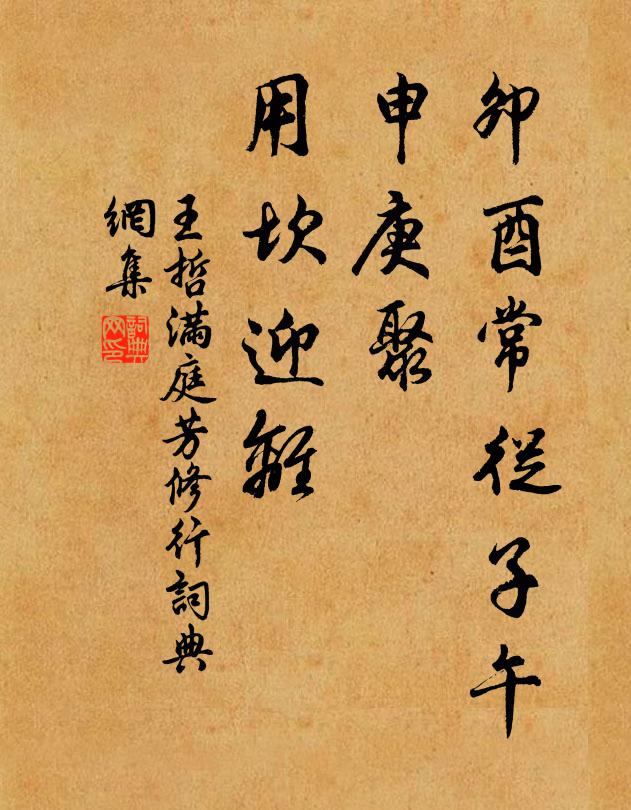 卯酉常從子午
申庚聚
用坎迎離
王哲滿庭芳修行詞典
網集
詞典网印